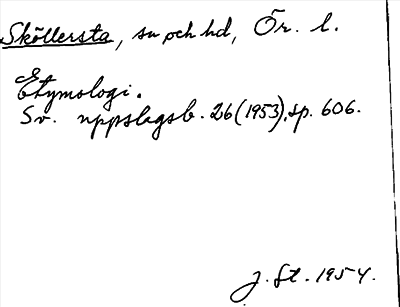 Sköllersta, sn och hd, Ör. l.
Etymologi.
Sv. uppslagsb. 26 (1953), sp. 606.
J. St. 1954.